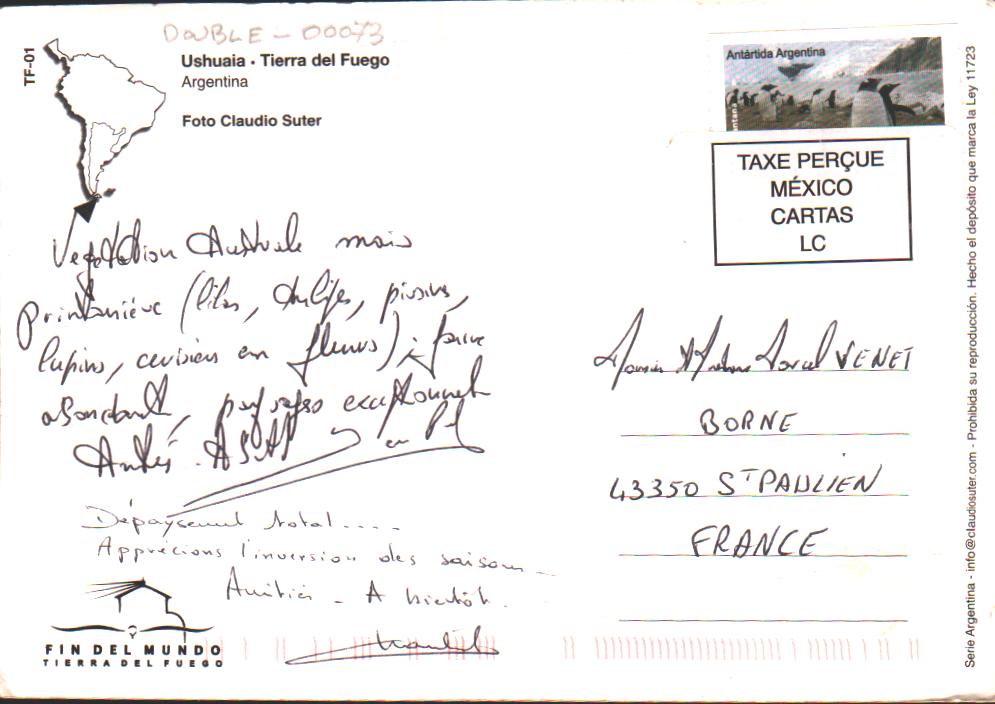 DOUBLE - 00073
TF-01
Ushuaia · Tierra del Fuego
Argentina
Foto Claudio Suter
Antártida Argentina
TAXE PERÇUE
MÉXICO
CARTAS
LC
Végétation Australe mais
printanière (lilas, tulipes,
lupins, cerisiers en fleurs) ; faune
abondante, paysages exceptionnels
Amitiés. ASAP
Dépaysement total....
Apprécions l'inversion des saisons
Amitiés - A bientôt.
Marcel VENET
BORNE
43350 ST PAULIEN
FRANCE
FIN DEL MUNDO
TIERRA DEL FUEGO
Serie Argentina - info@claudiosuter.com - Prohibida su reproducción. Hecho el depósito que marca la Ley 11723